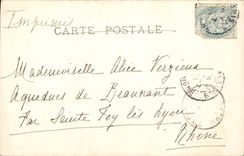 Imprimés
CARTE POSTALE
Mademoiselle Alice Verzieux
Aqueducs de Beaunant
Par Sainte Foy lès Lyon
Rhône